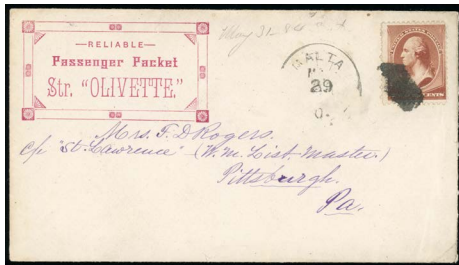 —RELIABLE—
Passenger Packet
Str. "OLIVETTE."
May 31
MALTA
29
O.
CENTS
Mrs. F. D. Rogers.
c/o "St. Lawrence" (W.m. List. Master.)
Pittsburgh.
Pa.